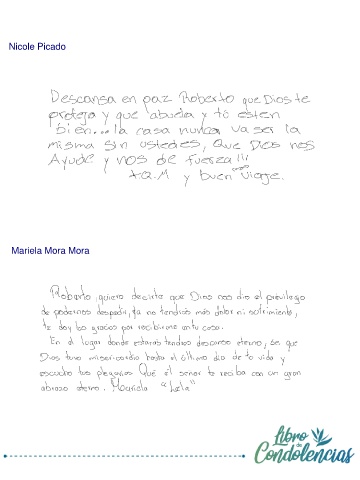 Nicole Picado
Descansa en paz Roberto que Dios te
proteja y que abuela y tó esten
bien... la casa nunca va ser la
misma sin ustedes, Que Dios nos
Ayude y nos de fuerza!!!
T.Q.M y buen viaje.
Mariela Mora Mora
Roberto, quiero decirte que Dios nos dio el privilegio
de podernos despedir, ya no tendrás más dolor ni sufrimiento,
te doy las gracias por recibirme en tu casa.
En el lugar donde estarás tendras descanso eterno, se que
Dios tuvo misericordia hasta el último día de tu vida y
escucho tus plegarias Que el señor te reciba con un gran
abrazo eterno. Mariela "Lela"
Libro
de
Condolencias